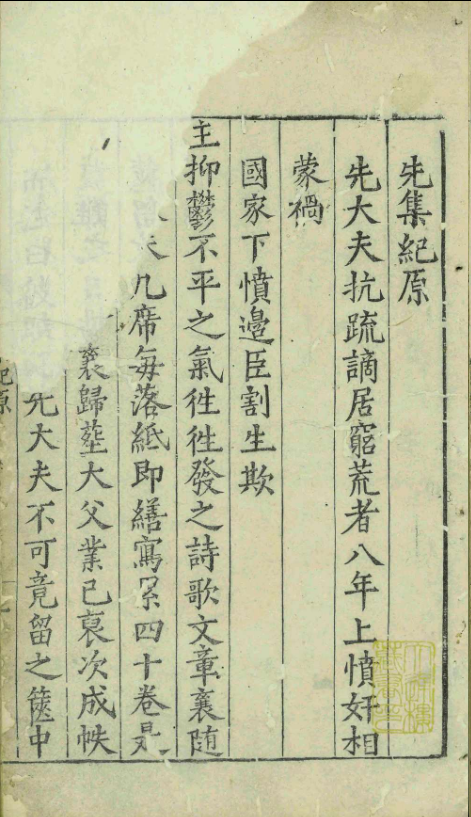 先集紀原
先大夫抗疏謫居窮荒者八年上憤奸相
蒙禍
國家下憤邉臣割生欺
主抑鬱不平之氣徃徃發之詩歌文章襄随
几席每落紙即繕寫累四十卷是
襄歸塟大父業已裒次成帙
先大夫不可竟留之篋中
紀原